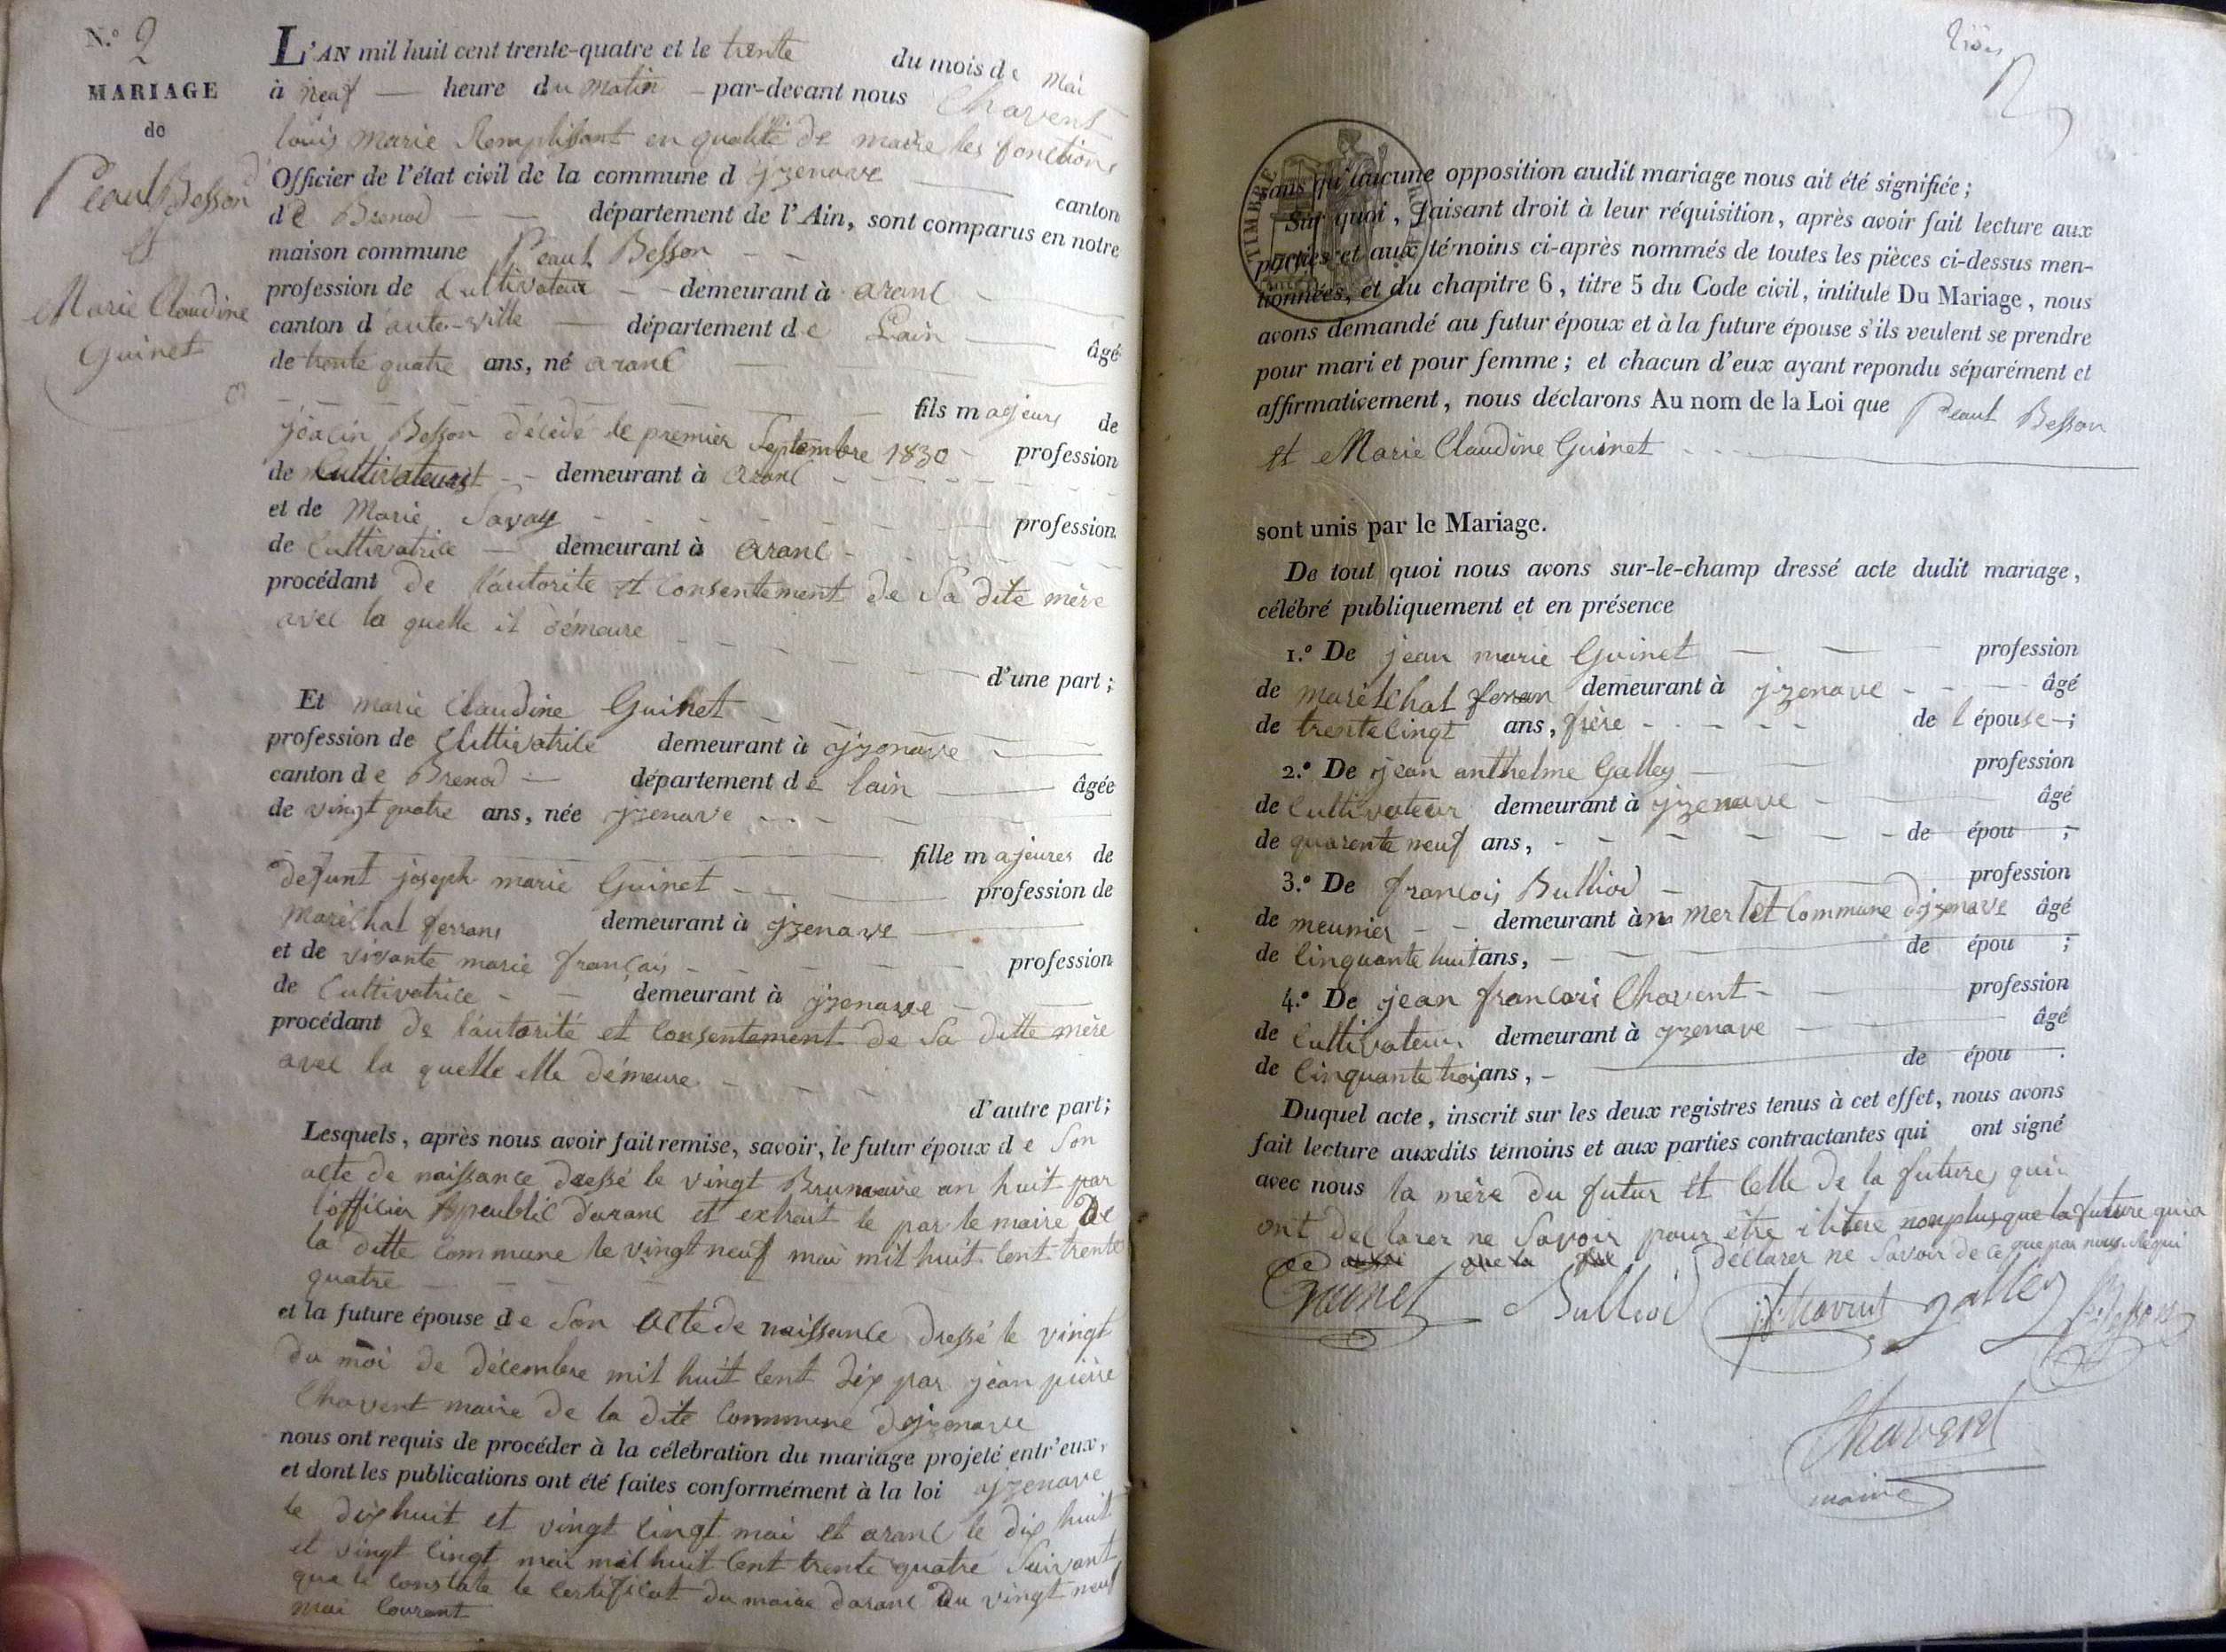 N.º 2
MARIAGE
de
Peaul Besson
et
Marie Claudine
Guinet
L'AN mil huit cent trente-quatre et le trente du mois de mai
à neuf heure du matin par-devant nous Chavent
louis marie Remplissant en qualité de maire les fonctions
Officier de l'état civil de la commune d'izenave canton
de Brenod département de l'Ain, sont comparus en notre
maison commune Peaul Besson
profession de Cultivateur demeurant à aranc
canton d'aute-ville département de Lain âgé
de trente quatre ans, né aranc
fils majeurs de
joacin Besson décédé le premier Septembre 1830 profession
de Cultivateurs demeurant à aranc
et de Marie Savay profession
de Cultivatrice demeurant à aranc
procédant de l'autorite et Consentement de Sa dite mère
avec la quelle il démeure
d'une part;
Et marie Claudine Guinet
profession de Cultivatrice demeurant à izenave
canton de Brenod département de lain âgée
de vingt quatre ans, née izenave
fille majeures de
defunt joseph marie Guinet profession de
Maréchal ferrans demeurant à izenave
et de vivante marie français profession
de Cultivatrice demeurant à izenave
procédant de l'autorité et Consentement de Sa ditte mère
avec la quelle elle démeure
d'autre part;
Lesquels, après nous avoir fait remise, savoir, le futur époux de Son
acte de naissance dressé le vingt Brumaire an huit par
l'officier publiC d'aranc et extrait le par le maire De
la ditte Commune le vingt neuf mai mil huit Cent trente
quatre
et la future épouse de Son acte de naissance dressé le vingt
du moi de décembre mil huit Cent dix par jean pièrre
Chavent maire de la dite Commune d'izenave
nous ont requis de procéder à la célébration du mariage projeté entr'eux,
et dont les publications ont été faites conformément à la loi izenave
le dix huit et vingt Cinqt mai et aranc le dix huit
et vingt Cinqt mai mil huit Cent trente quatre Suivant
que le Constate le Certificat du maire d'aranc Du vingt neuf
mai Courant
TIMBRE
sans qu'aucune opposition audit mariage nous ait été signifiée;
Sur quoi, faisant droit à leur réquisition, après avoir fait lecture aux
parties et aux témoins ci-après nommés de toutes les pièces ci-dessus men-
tionnées, et du chapitre 6, titre 5 du Code civil, intitulé Du Mariage, nous
avons demandé au futur époux et à la future épouse s'ils veulent se prendre
pour mari et pour femme; et chacun d'eux ayant repondu séparément et
affirmativement, nous déclarons Au nom de la Loi que Peaul Besson
et Marie Claudine Guinet
sont unis par le Mariage.
De tout quoi nous avons sur-le-champ dressé acte dudit mariage,
célébré publiquement et en présence
1.º De jean marie Guinet profession
de maréchal ferran demeurant à izenave âgé
de trente Cinqt ans, frère de l'épouse;
2.º De jean anthelme Galley profession
de Cultivateur demeurant à izenave âgé
de quarente neuf ans, de épou ;
3.º De françois Bulliod profession
de meunier demeurant à merlet Commune d'izenave âgé
de Cinquante huit ans, de épou ;
4.º De jean francois Chavent profession
de Cultivateur demeurant à izenave âgé
de Cinquante trois ans, de épou .
Duquel acte, inscrit sur les deux registres tenus à cet effet, nous avons
fait lecture auxdits témoins et aux parties contractantes qui ont signé
avec nous la mère du futur et Celle de la future, qui
ont declarer ne Savoir pour être ilitere non plus que la future qui a
déclarer ne Savoir de ce que par nous
Guinet Bulliod Chavent galley Besson
Chavent
maire